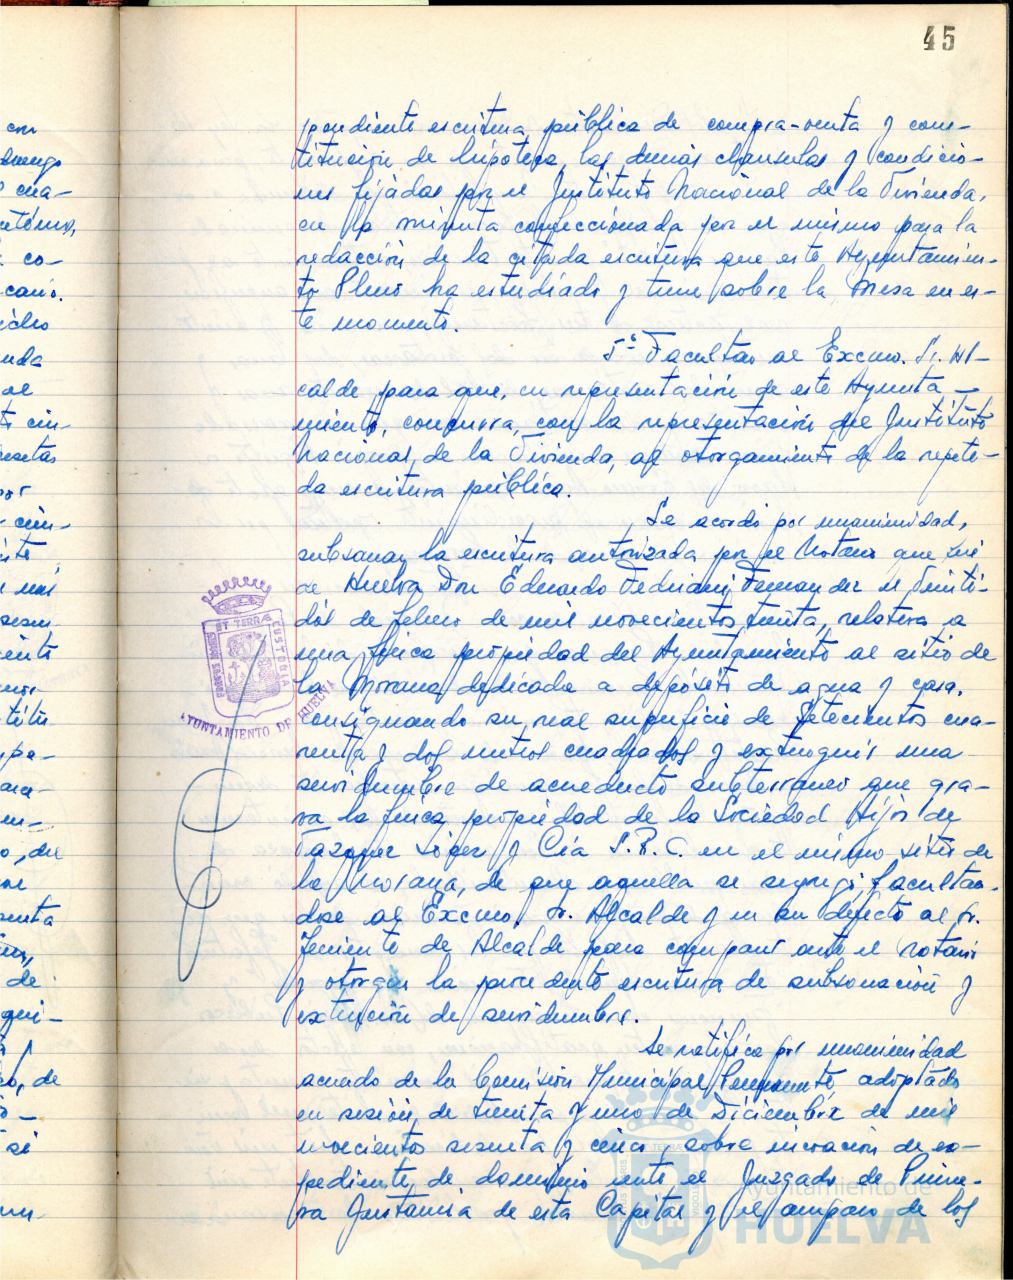 45
pondiente escritura pública de compra-venta y cons-
titución de hipoteca, las demás cláusulas y condicio-
nes fijadas por el Instituto Nacional de la Vivienda,
en la minuta confeccionada por el mismo para la
redacción de la citada escritura que este Ayuntamien-
to Pleno ha estudiado y tiene sobre la Mesa en es-
te momento.
5º Facultar al Excmo. Sr. Al-
calde para que, en representación de este Ayunta-
miento, concurra, con la representación del Instituto
Nacional de la Vivienda, al otorgamiento de la repeti-
da escritura pública.
Se acordó por unanimidad,
subsanar la escritura autorizada por el Notario que fué
de Huelva Don Eduardo Fedriani Fernandez el veinti-
dós de febrero de mil novecientos treinta, relativa a
una finca propiedad del Ayuntamiento al sitio de
la Morana, dedicada a depósito de agua y casa,
consignando su real superficie de setecientos cua-
renta y dos metros cuadrados y extinguir una
servidumbre de acueducto subterraneo que gra-
va la finca propiedad de la Sociedad Hijos de
Vazquez López y Cía S.R.C. en el mismo sitio de
la Morana, de que aquella se segregó, facultan-
dose al Excmo. Sr. Alcalde y en su defecto al Sr.
Teniente de Alcalde para comparecer ante el notario
y otorgar la procedente escritura de subsanación y
extinción de servidumbre.
Se ratifica por unanimidad
acuerdo de la Comisión Municipal Permanente adoptado
en sesión de treinta y uno de Diciembre de mil
novecientos sesenta y cinco, sobre incoación de ex-
pediente de dominio ante el Juzgado de Prime-
ra Instancia de esta Capital y al amparo de los
ET TERRÆ
CUSTODIA
PORTUS MARIS
AYUNTAMIENTO DE HUELVA
Ayuntamiento de
HUELVA